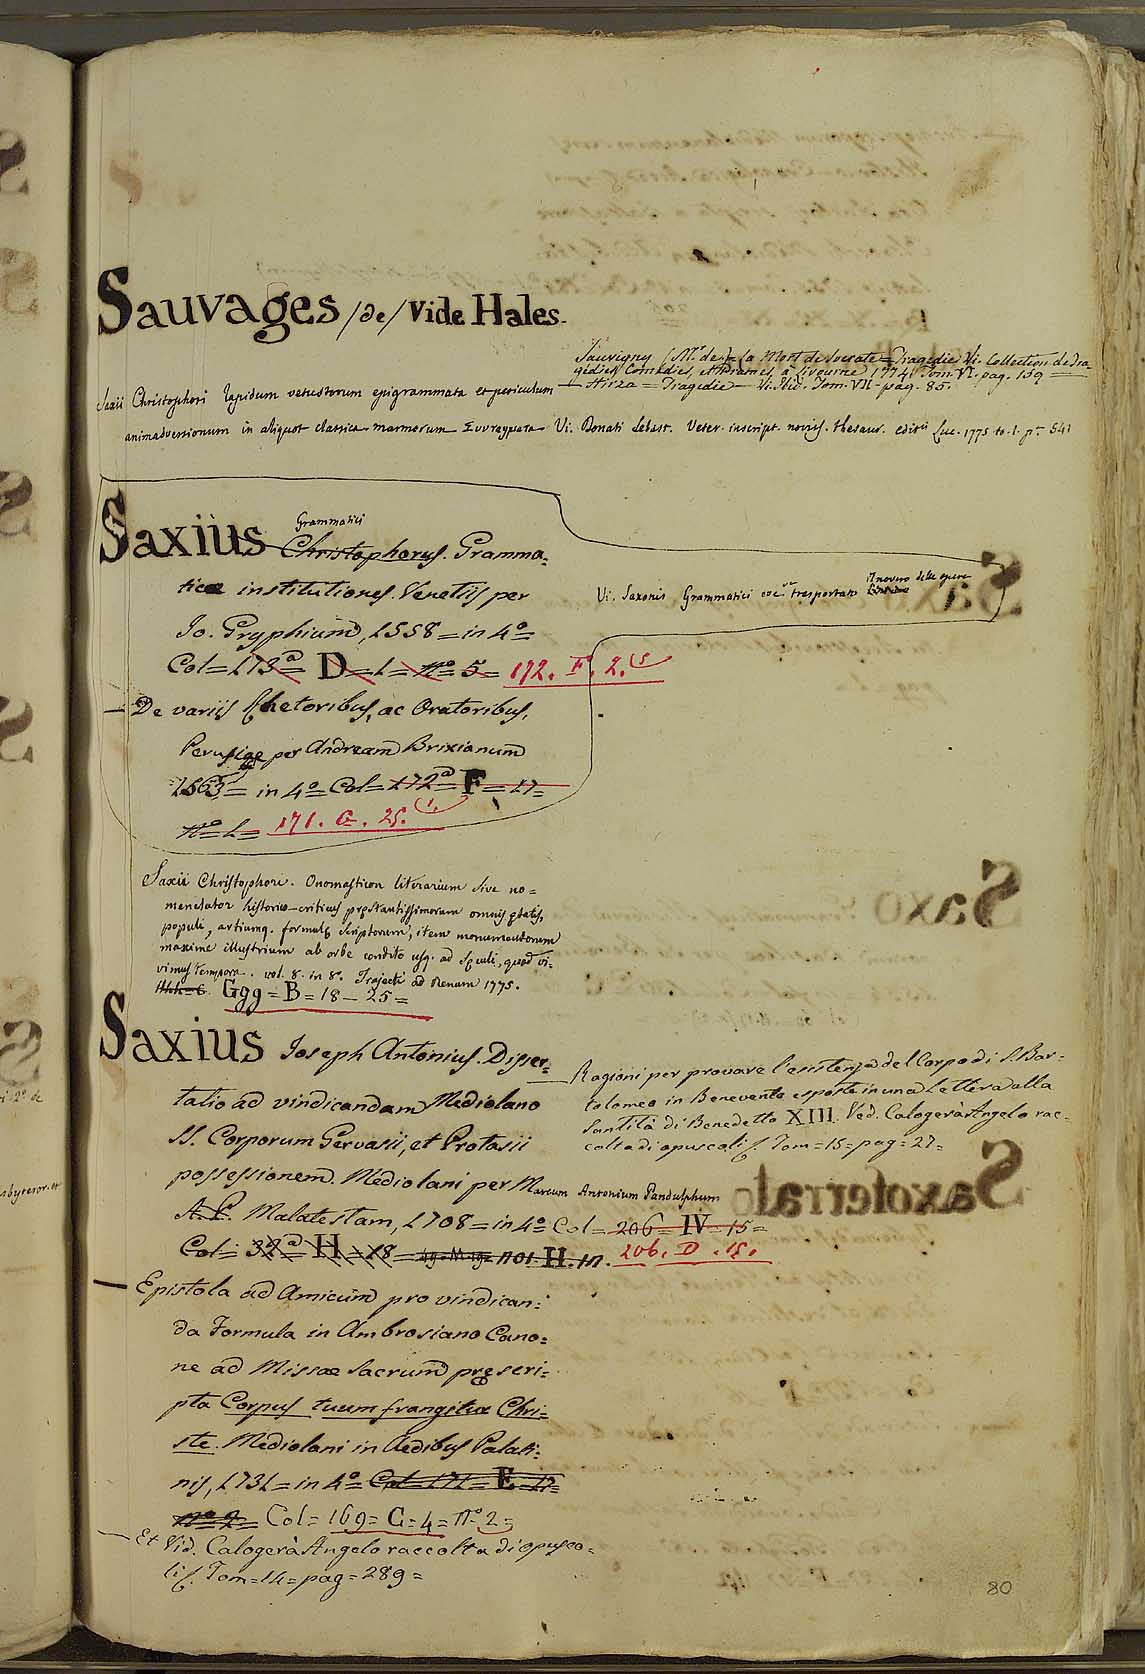 Sauvages /de/ Vide Hales.
Sauvigny (Mr. de) = La Mort de Socrate = Tragedie Vi. Collection de Tra
gedies, Comedies, et Drames, à Livourne 1774. Tom. VI. pag. 159 =
— Hirza = Tragedie — Vi. Ibid. Tom. VII - pag. 85.
Saxii Christophori Lapidum vetustorum epigrammata et periculum
animadversionum in aliquot classica marmorum Συνταγματα Vi. Donati Sebast. Veter. inscript. noviss. thesaur. editis Luc. 1775 to. 1. p. 541
Grammatici
Saxius Christophorus. Gramma=
ticæ institutiones. Venetiis per
Jo. Gryphium, 1558 = in 4º =
Col = 173ª = D = 1 = nº = 5 = 172. F. 2. (5
Vi. Saxonis Grammatici trasportato il novero delle opere
— De variis Rhetoribus, ac Oratoribus,
Perusiae per Andream Brixianum
1563 = in 4º = Col = 172ª = F = 17 =
nº = 1 = 171. G. 25. (1.
Saxii Christophori. Onomasticon literarium sive no=
menclator historico-criticus pręstantissimorum omnis ętatis,
populi, artiumq. formulę scriptorum, item monumentorum
maxime illustrium ab orbe condito usq. ad sęculi, quod vi=
vimus tempora. vol. 8. in 8º. Trajecti ad Rhenum 1775.
Ggg = B = 18 — 25 =
Saxius Joseph Antonius. Disser=
tatio ad vindicandam Mediolano
SS. Corporum Gervasii, et Protasii
possessionem. Mediolani per Marcum Antonium Pandulphum
A. P. Malatestam, 1708 = in 4º = Col = 206 = IV = 15 =
Col = 32ª = H = 18 = H. 206. D. 15.
— Ragioni per provare l'esistenza del Corpo di S. Bar=
tolomeo in Benevento esposte in una Lettera alla
Santità di Benedetto XIII. Ved. Calogerà Angelo rac=
colta di opuscoli s. Tom = 15 = pag = 27 =
— Epistola ad Amicum pro vindican=
da Formula in Ambrosiano Cano=
ne ad Missae Sacrum pręscri=
pta Corpus tuum frangitur Chri=
ste. Mediolani in Aedibus Palati=
nis, 1731 = in 4º = Col = 171 = E = 17 =
nº 9 = Col = 169 = G = 4 = nº 2 =
— Et Vid. Calogerà Angelo raccolta di opusco=
li s. Tom = 14 = pag = 289 =
80